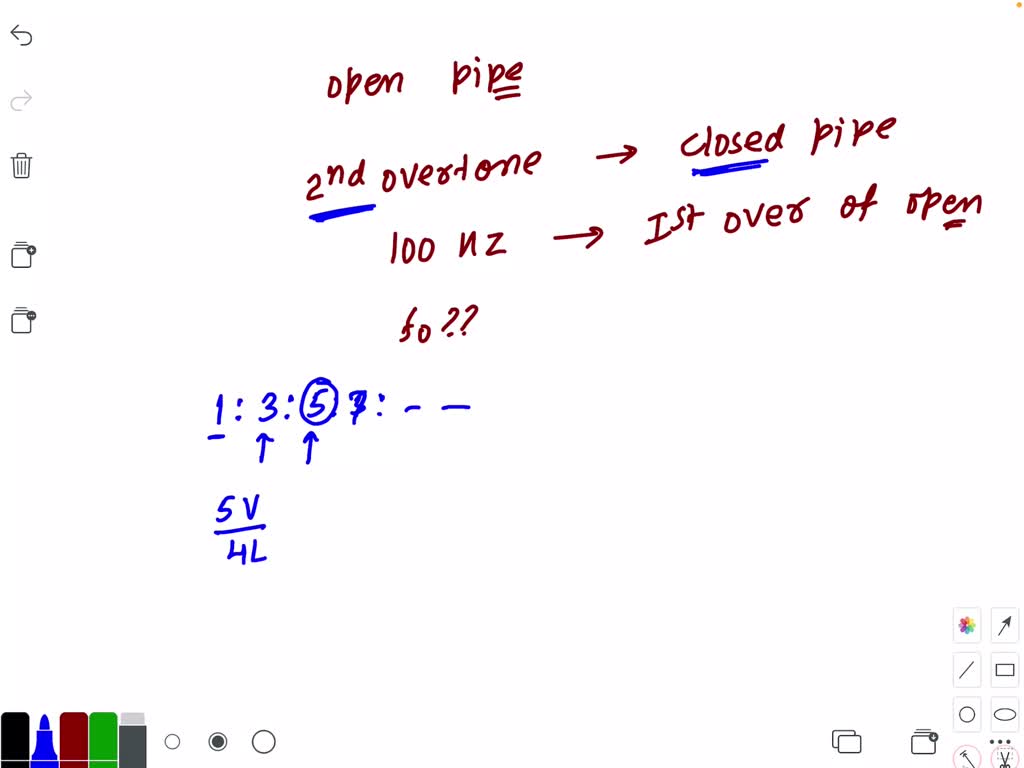 open pipe
2nd overtone → closed pipe
100 HZ → Ist over of open
fo ??
1 : 3 : 5 : 7 : - -
5V
4L